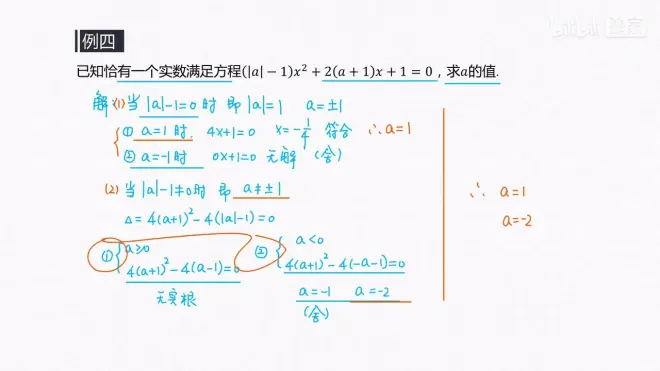 bilibili
例四
已知恰有一个实数满足方程(|a|−1)x²+2(a+1)x+1=0，求a的值.
解(1)当|a|-1=0时 即|a|=1 a=±1
① a=1时. 4x+1=0 x=-1/4 符合 ∴a=1
② a=-1时 0x+1=0 无解 (舍)
(2) 当|a|-1≠0时 即 a≠±1
Δ=4(a+1)²-4(|a|-1)=0
① a≥0
4(a+1)²-4(a-1)=0
无实根
② a<0
4(a+1)²-4(-a-1)=0
a=-1 a=-2
(舍)
∴ a=1
a=-2